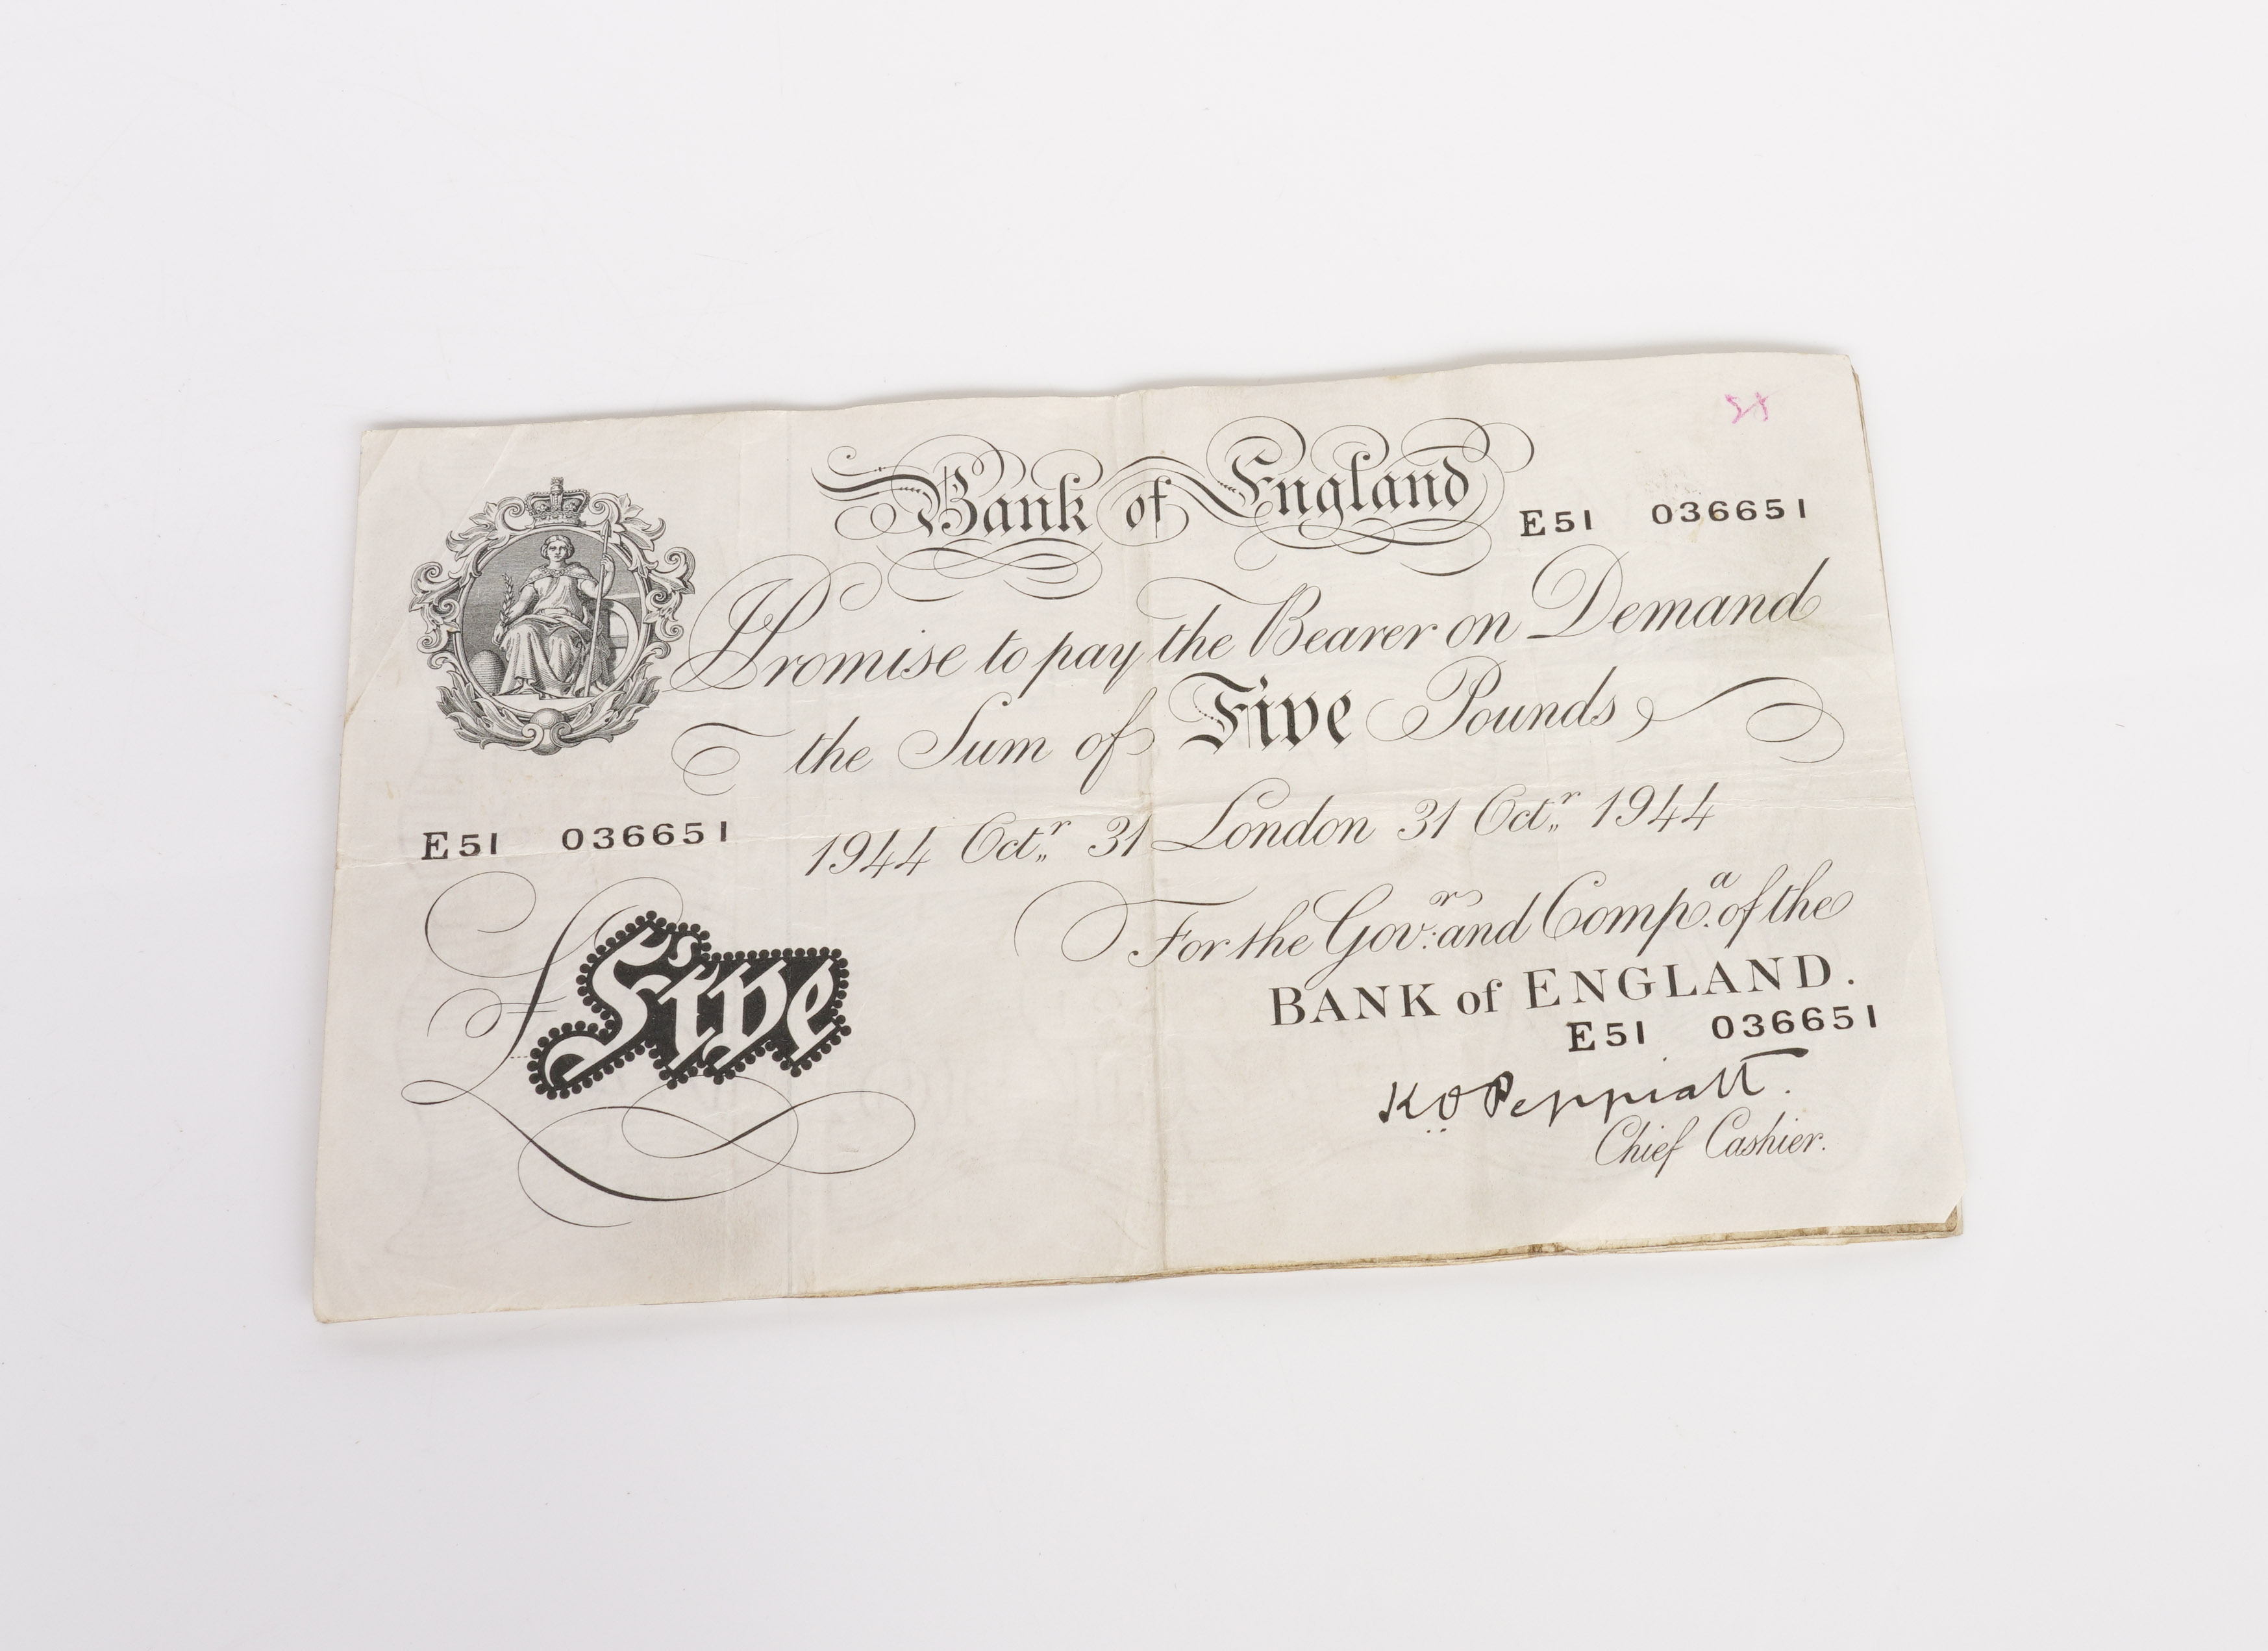 Bank of England
E51 036651
I Promise to pay the Bearer on Demand
the Sum of Five Pounds
E51 036651
1944 Octr 31 London 31 Octr 1944
For the Govr: and Compa. of the
BANK of ENGLAND.
£Five
E51 036651
K.O. Peppiatt.
Chief Cashier.